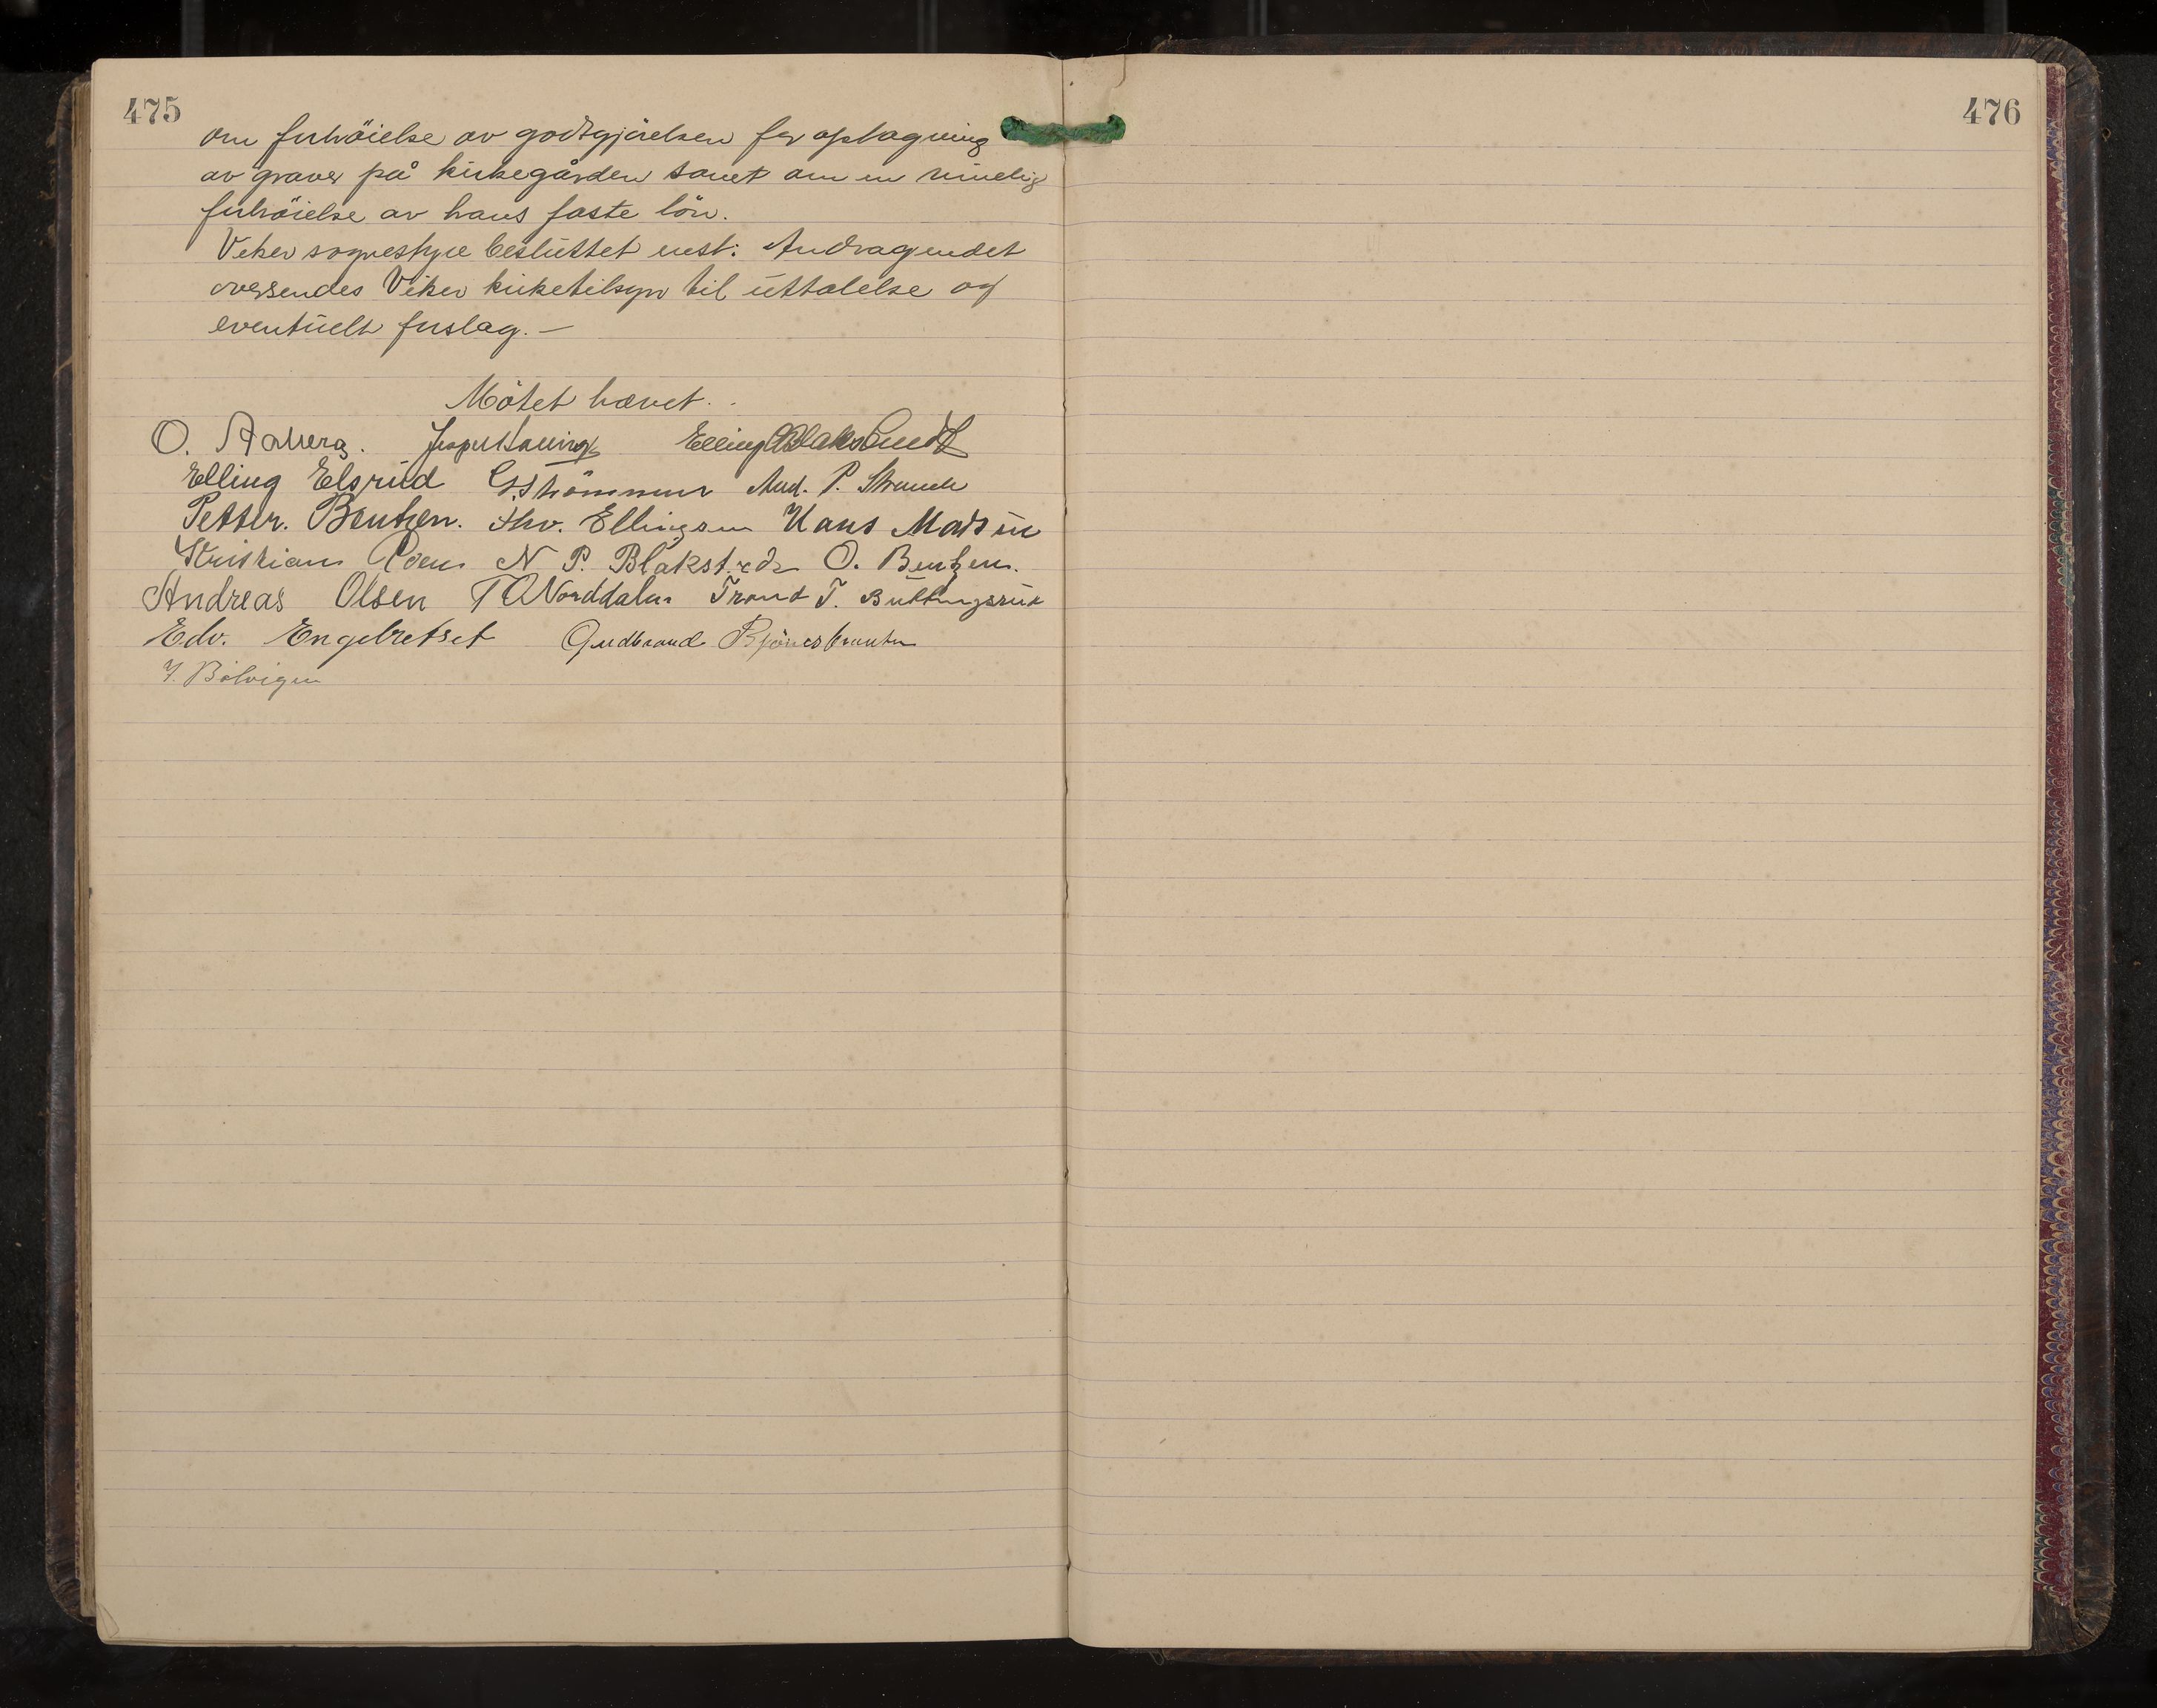 475
om forhöielse av godtgjörelsen for optagning
av graver på kirkegården samt om en rimelig
forhöielse av hans faste lön.
Viker sognestyre besluttet enst: Andragendet
oversendes Viker kirketilsyn til uttalelse og
eventuelt forslag. —
Mötet hævet.
O. Aaberg. Elling
Elling Elsrud G. Strömmen And. P. Strande
Petter. Bentzen. Thv. Ellingsen Hans
Kristian N P. Blakstad O. Bentzen.
Andreas Olsen T O Norddalen Trond T. Buttingsrud
Edv. Engebretsen Gudbrand
476